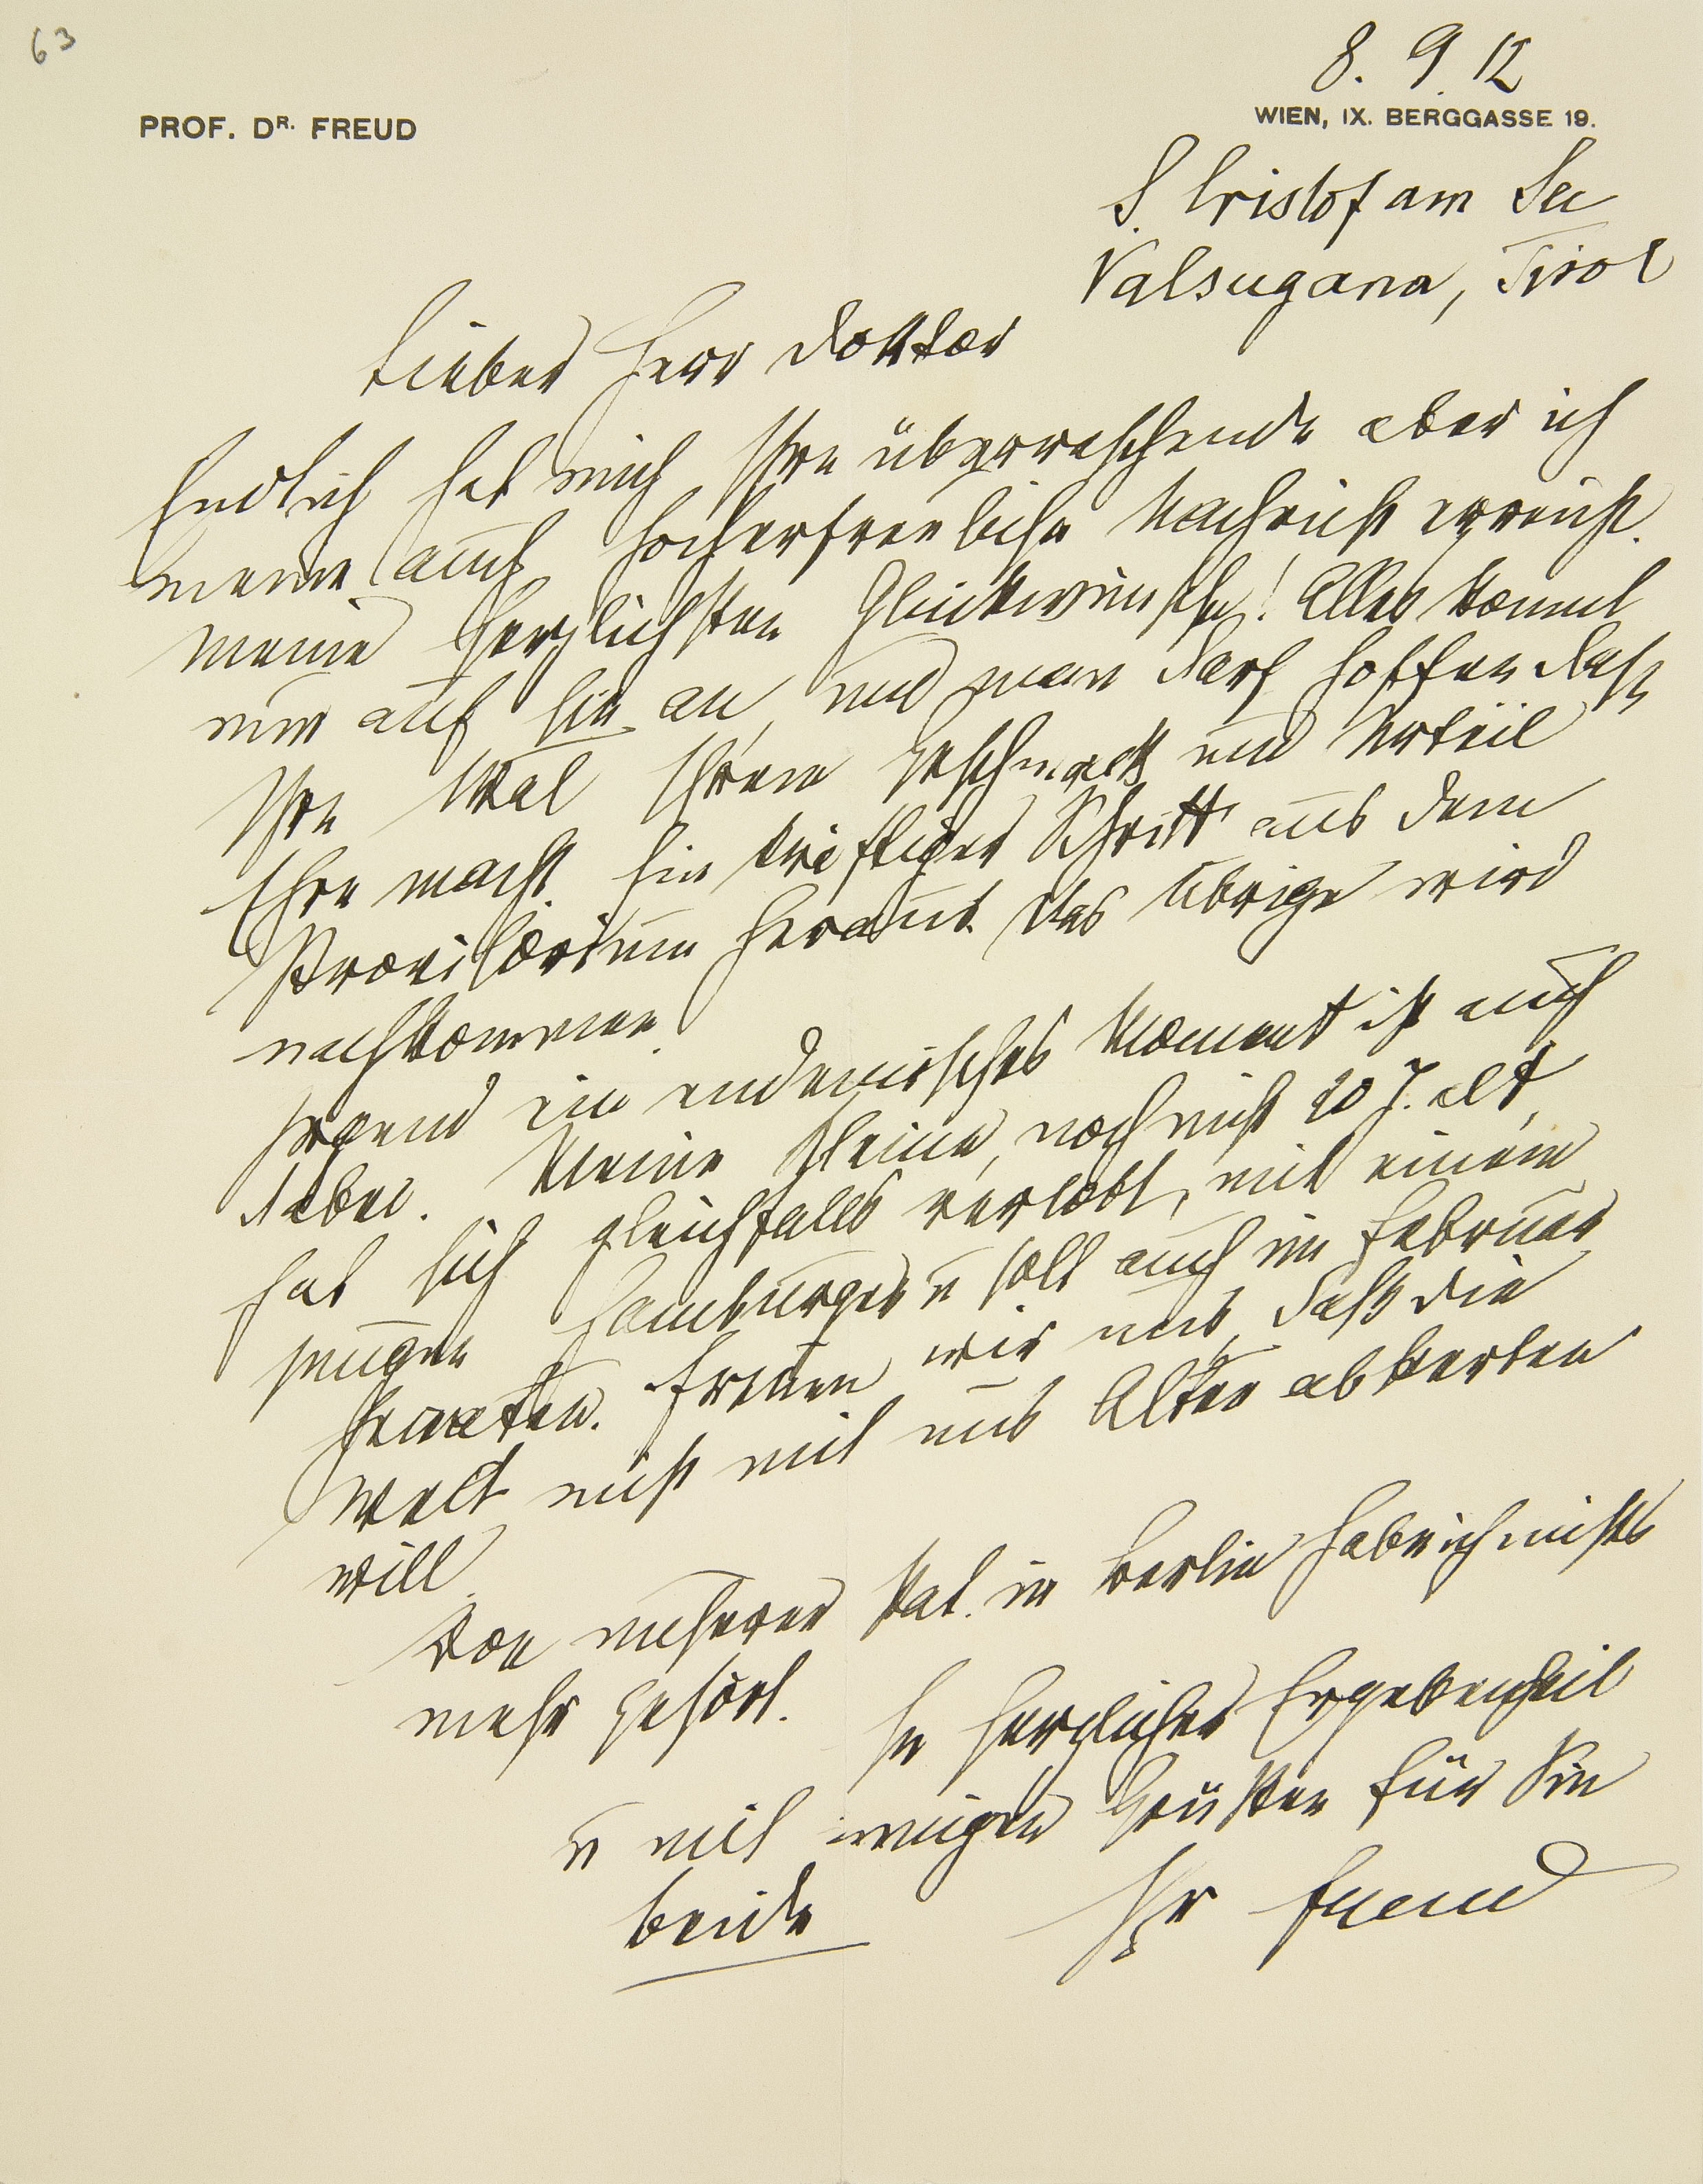 63
8. 9. 12
PROF. DR. FREUD
WIEN, IX. BERGGASSE 19.
S. Cristof am See
Valsugana, Tirol
Lieber Herr Doktor
Endlich hat mich Ihre überraschende aber ich
meine auch hocherfreuliche Nachricht erreicht.
Meine herzlichsten Glückwünsche! Alles kommt
nun auf Sie an, und man darf hoffen daß
Ihre Wal Ihrem Geschmack und Urteil
Ehre macht. Ein kräftiger Schritt aus dem
Provisorium heraus. Das Übrige wird
nachkommen.
Irgend ein endemisches Moment ist auch
dabei. Meine Kleine, noch nicht 20 J. alt,
hat sich gleichfalls verlobt, mit einem
jungen Hamburger u soll auch im Februar
heiraten. Freuen wir uns, daß die
Welt nicht mit uns Alten absterben
will.
Von unserer Pat. in Berlin habe ich nichts
mehr gehört.
In herzlicher Ergebenheit
u mit innigen Grüßen für Sie
beide
Ihr Freud